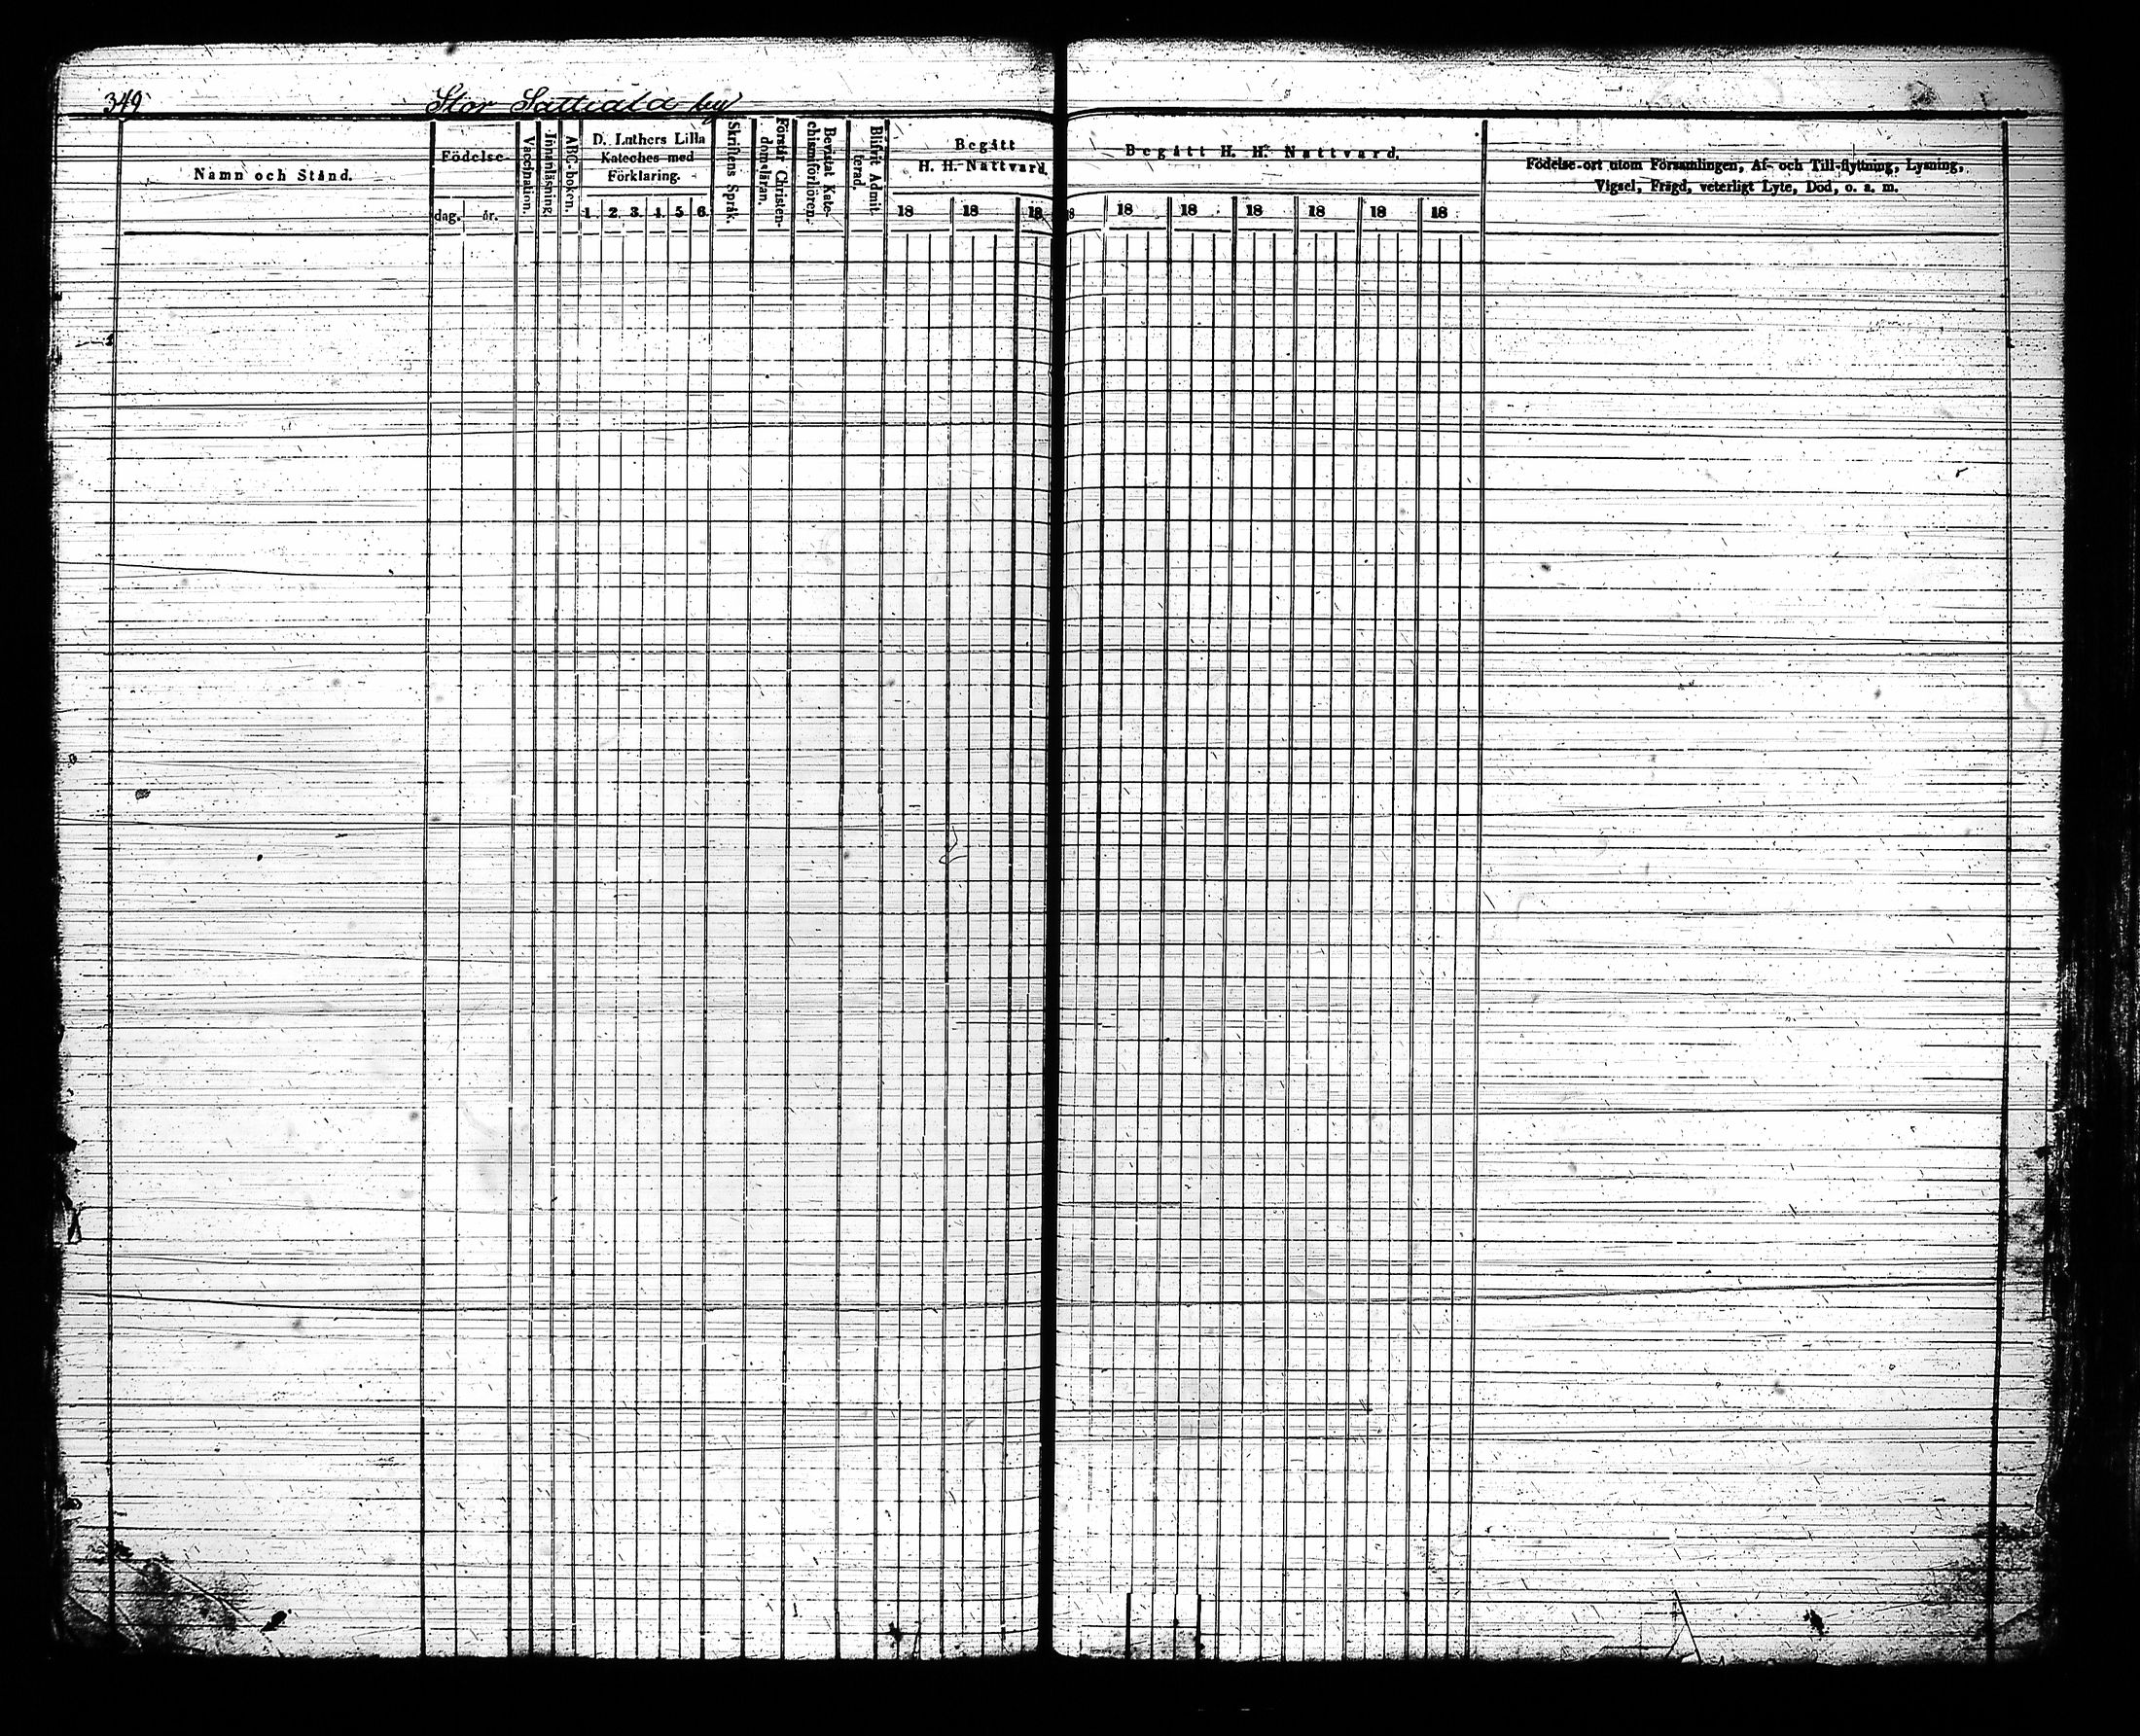 349
Stor Sattiala by
Namn och Stånd.
Födelse-
dag. år.
Vaccination.
Innanläsning
ABC-boken.
D. Luthers Lilla
Kateches med
Förklaring.
1. 2. 3. 4. 5 6.
Skriftens Språk.
Förstår Christen-
domsläran.
Bevistat Kate-
chismiförhören.
Blifvit Admit-
terad.
Begått
H. H. Nattvard.
18 18 18
Begått H. H. Nattvard.
18 18 18 18 18 18
Födelse-ort utom Församlingen, Af- och Till-flyttning, Lysning,
Vigsel, Frägd, veterligt Lyte, Död, o. s. m.